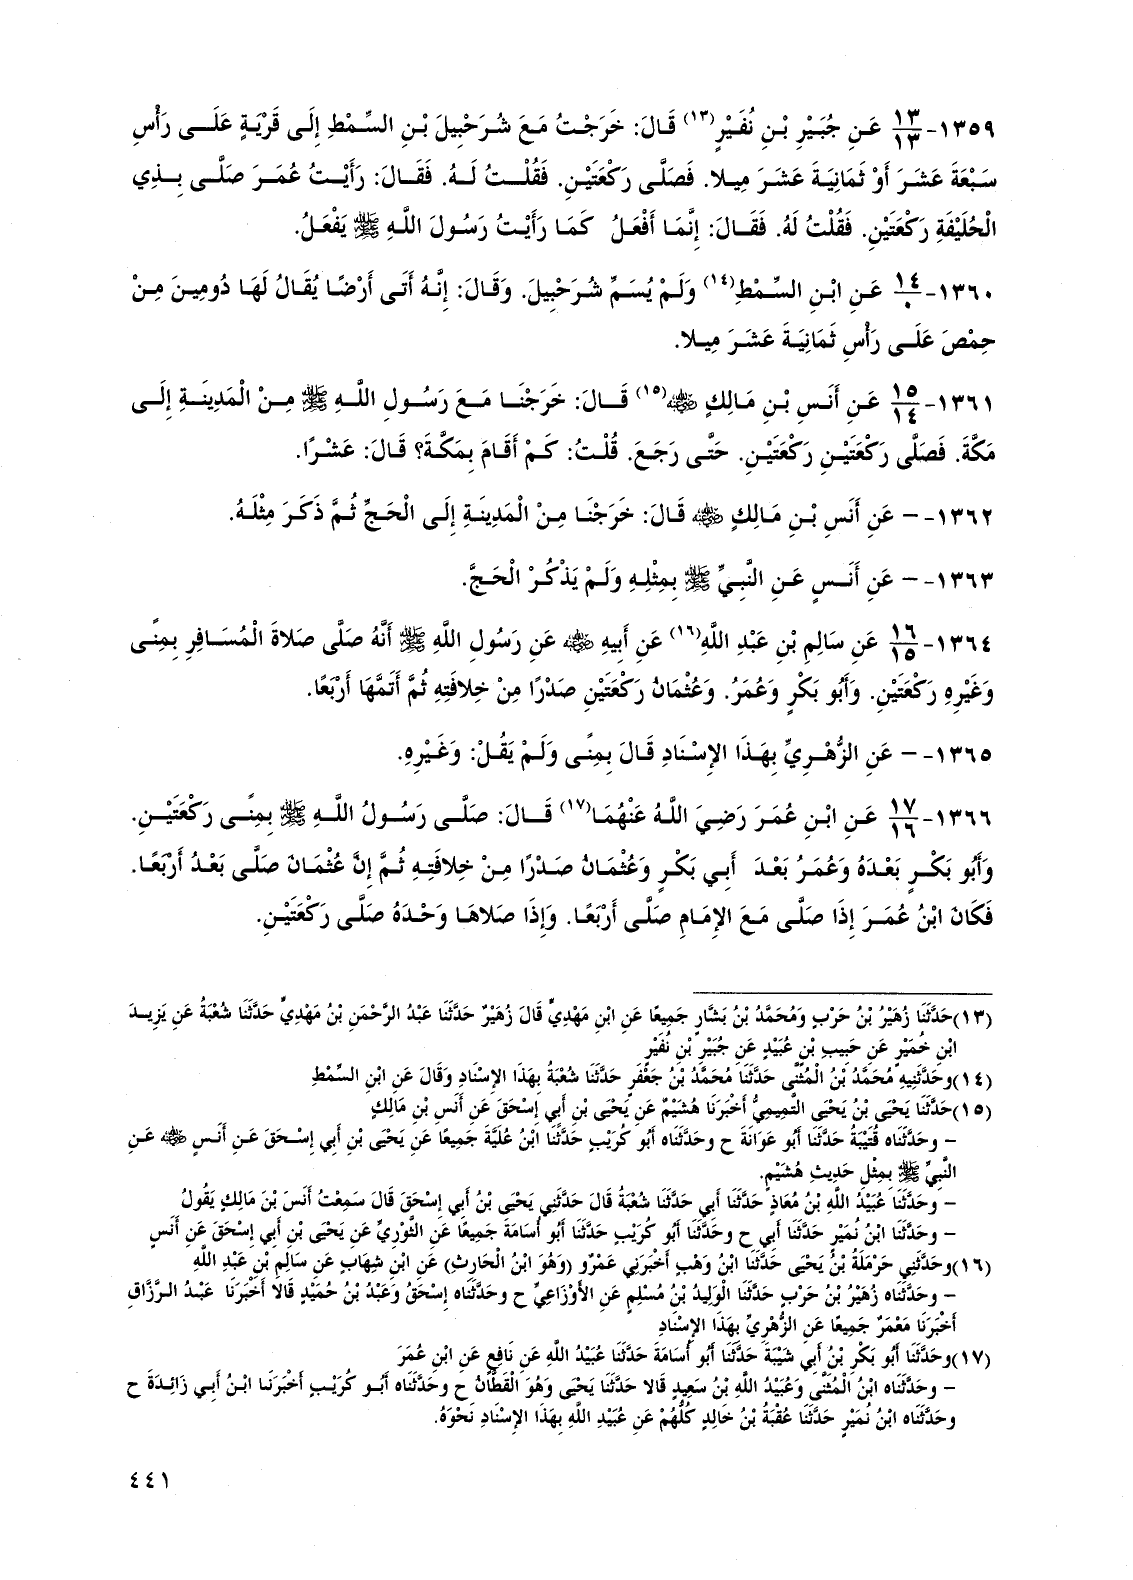 ١٣٥٩- ١٣/١٣ عَنِ جُبَيْرِ بْنِ نُفَيْرٍ(١٣) قَالَ: خَرَجْتُ مَعَ شُرَحْبِيلَ بْنِ السِّمْطِ إِلَى قَرْيَةٍ عَلَى رَأْسِ
سَبْعَةَ عَشَرَ أَوْ ثَمَانِيَةَ عَشَرَ مِيلا. فَصَلَّى رَكْعَتَيْنِ. فَقُلْتُ لَهُ. فَقَالَ: رَأَيْتُ عُمَرَ صَلَّى بِذِي
الْحُلَيْفَةِ رَكْعَتَيْنِ. فَقُلْتُ لَهُ. فَقَالَ: إِنَّمَا أَفْعَلُ كَمَا رَأَيْتُ رَسُولَ اللَّهِ ﷺ يَفْعَلُ.
١٣٦٠- ١٤/٠ عَنِ ابْنِ السِّمْطِ(١٤) وَلَمْ يُسَمِّ شُرَحْبِيلَ. وَقَالَ: إِنَّهُ أَتَى أَرْضًا يُقَالُ لَهَا دُومِينَ مِنْ
حِمْصَ عَلَى رَأْسِ ثَمَانِيَةَ عَشَرَ مِيلا.
١٣٦١- ١٥/١٤ عَنِ أَنَسِ بْنِ مَالِكٍ ﵁(١٥) قَالَ: خَرَجْنَا مَعَ رَسُولِ اللَّهِ ﷺ مِنْ الْمَدِينَةِ إِلَى
مَكَّةَ. فَصَلَّى رَكْعَتَيْنِ رَكْعَتَيْنِ. حَتَّى رَجَعَ. قُلْتُ: كَمْ أَقَامَ بِمَكَّةَ؟ قَالَ: عَشْرًا.
١٣٦٢- – عَنِ أَنَسِ بْنِ مَالِكٍ ﵁ قَالَ: خَرَجْنَا مِنْ الْمَدِينَةِ إِلَى الْحَجِّ ثُمَّ ذَكَرَ مِثْلَهُ.
١٣٦٣- – عَنِ أَنَسٍ عَنِ النَّبِيِّ ﷺ بِمِثْلِهِ وَلَمْ يَذْكُرْ الْحَجَّ.
١٣٦٤- ١٦/١٥ عَنِ سَالِمِ بْنِ عَبْدِ اللَّهِ(١٦) عَنِ أَبِيهِ ﵁ عَنِ رَسُولِ اللَّهِ ﷺ أَنَّهُ صَلَّى صَلاةَ الْمُسَافِرِ بِمِنًى
وَغَيْرِهِ رَكْعَتَيْنِ. وَأَبُو بَكْرٍ وَعُمَرُ. وَعُثْمَانُ رَكْعَتَيْنِ صَدْرًا مِنْ خِلافَتِهِ ثُمَّ أَتَمَّهَا أَرْبَعًا.
١٣٦٥- – عَنِ الزُّهْرِيِّ بِهَذَا الإِسْنَادِ قَالَ بِمِنًى وَلَمْ يَقُلْ: وَغَيْرِهِ.
١٣٦٦- ١٧/١٦ عَنِ ابْنِ عُمَرَ رَضِيَ اللَّهُ عَنْهُمَا(١٧) قَالَ: صَلَّى رَسُولُ اللَّهِ ﷺ بِمِنًى رَكْعَتَيْنِ.
وَأَبُو بَكْرٍ بَعْدَهُ وَعُمَرُ بَعْدَ أَبِي بَكْرٍ وَعُثْمَانُ صَدْرًا مِنْ خِلافَتِهِ ثُمَّ إِنَّ عُثْمَانَ صَلَّى بَعْدُ أَرْبَعًا.
فَكَانَ ابْنُ عُمَرَ إِذَا صَلَّى مَعَ الإِمَامِ صَلَّى أَرْبَعًا. وَإِذَا صَلاهَا وَحْدَهُ صَلَّى رَكْعَتَيْنِ.
(١٣)حَدَّثَنَا زُهَيْرُ بْنُ حَرْبٍ وَمُحَمَّدُ بْنُ بَشَّارٍ جَمِيعًا عَنِ ابْنِ مَهْدِيٍّ قَالَ زُهَيْرٌ حَدَّثَنَا عَبْدُ الرَّحْمَنِ بْنُ مَهْدِيٍّ حَدَّثَنَا شُعْبَةُ عَنِ يَزِيدَ
ابْنِ خُمَيْرٍ عَنِ حَبِيبِ بْنِ عُبَيْدٍ عَنِ جُبَيْرِ بْنِ نُفَيْرٍ
(١٤)وحَدَّثَنِيهِ مُحَمَّدُ بْنُ الْمُثَنَّى حَدَّثَنَا مُحَمَّدُ بْنُ جَعْفَرٍ حَدَّثَنَا شُعْبَةُ بِهَذَا الإِسْنَادِ وَقَالَ عَنِ ابْنِ السِّمْطِ
(١٥)حَدَّثَنَا يَحْيَى بْنُ يَحْيَى التَّمِيمِيُّ أَخْبَرَنَا هُشَيْمٌ عَنِ يَحْيَى بْنِ أَبِي إِسْحَقَ عَنِ أَنَسِ بْنِ مَالِكٍ
– وحَدَّثَنَاه قُتَيْبَةُ حَدَّثَنَا أَبُو عَوَانَةَ ح وحَدَّثَنَاه أَبُو كُرَيْبٍ حَدَّثَنَا ابْنُ عُلَيَّةَ جَمِيعًا عَنِ يَحْيَى بْنِ أَبِي إِسْحَقَ عَنِ أَنَسٍ ﵁ عَنِ
النَّبِيِّ ﷺ بِمِثْلِ حَدِيثِ هُشَيْمٍ.
– وحَدَّثَنَا عُبَيْدُ اللَّهِ بْنُ مُعَاذٍ حَدَّثَنَا أَبِي حَدَّثَنَا شُعْبَةُ قَالَ حَدَّثَنِي يَحْيَى بْنُ أَبِي إِسْحَقَ قَالَ سَمِعْتُ أَنَسَ بْنَ مَالِكٍ يَقُولُ
– وحَدَّثَنَا ابْنُ نُمَيْرٍ حَدَّثَنَا أَبِي ح وحَدَّثَنَا أَبُو كُرَيْبٍ حَدَّثَنَا أَبُو أُسَامَةَ جَمِيعًا عَنِ الثَّوْرِيِّ عَنِ يَحْيَى بْنِ أَبِي إِسْحَقَ عَنِ أَنَسٍ
(١٦)وحَدَّثَنِي حَرْمَلَةُ بْنُ يَحْيَى حَدَّثَنَا ابْنُ وَهْبٍ أَخْبَرَنِي عَمْرٌو (وَهُوَ ابْنُ الْحَارِثِ) عَنِ ابْنِ شِهَابٍ عَنِ سَالِمِ بْنِ عَبْدِ اللَّهِ
– وحَدَّثَنَاه زُهَيْرُ بْنُ حَرْبٍ حَدَّثَنَا الْوَلِيدُ بْنُ مُسْلِمٍ عَنِ الأَوْزَاعِيِّ ح وحَدَّثَنَاه إِسْحَقُ وَعَبْدُ بْنُ حُمَيْدٍ قَالا أَخْبَرَنَا عَبْدُ الرَّزَّاقِ
أَخْبَرَنَا مَعْمَرٌ جَمِيعًا عَنِ الزُّهْرِيِّ بِهَذَا الإِسْنَادِ
(١٧)وحَدَّثَنَا أَبُو بَكْرِ بْنُ أَبِي شَيْبَةَ حَدَّثَنَا أَبُو أُسَامَةَ حَدَّثَنَا عُبَيْدُ اللَّهِ عَنِ نَافِعٍ عَنِ ابْنِ عُمَرَ
– وحَدَّثَنَاه ابْنُ الْمُثَنَّى وَعُبَيْدُ اللَّهِ بْنُ سَعِيدٍ قَالا حَدَّثَنَا يَحْيَى وَهُوَ الْقَطَّانُ ح وحَدَّثَنَاه أَبُو كُرَيْبٍ أَخْبَرَنَا ابْنُ أَبِي زَائِدَةَ ح
وحَدَّثَنَاه ابْنُ نُمَيْرٍ حَدَّثَنَا عُقْبَةُ بْنُ خَالِدٍ كُلُّهُمْ عَنِ عُبَيْدِ اللَّهِ بِهَذَا الإِسْنَادِ نَحْوَهُ.
٤٤١